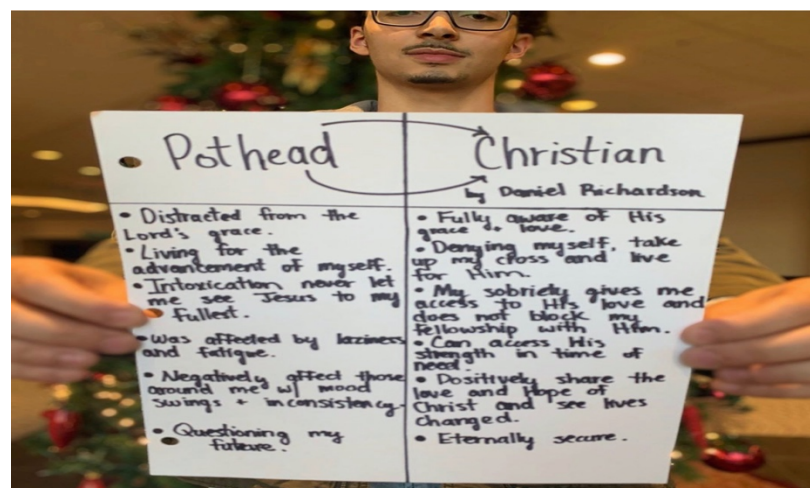 Pothead
Christian
by Daniel Richardson
• Distracted from the
Lord's grace.
• Living for the
advancement of myself.
• Intoxication never let
me see Jesus to my
fullest.
• Was affected by laziness
and fatigue.
• Negatively affect those
around me w/ mood
swings + inconsistency.
• Questioning my
future.
• Fully aware of His
grace + love.
• Denying myself, take
up my cross and live
for Him.
• My sobriety gives me
access to His love and
does not block my
fellowship with Him.
• Can access His
strength in time of
need.
• Positively share the
love and Hope of
Christ and see lives
changed.
• Eternally secure.